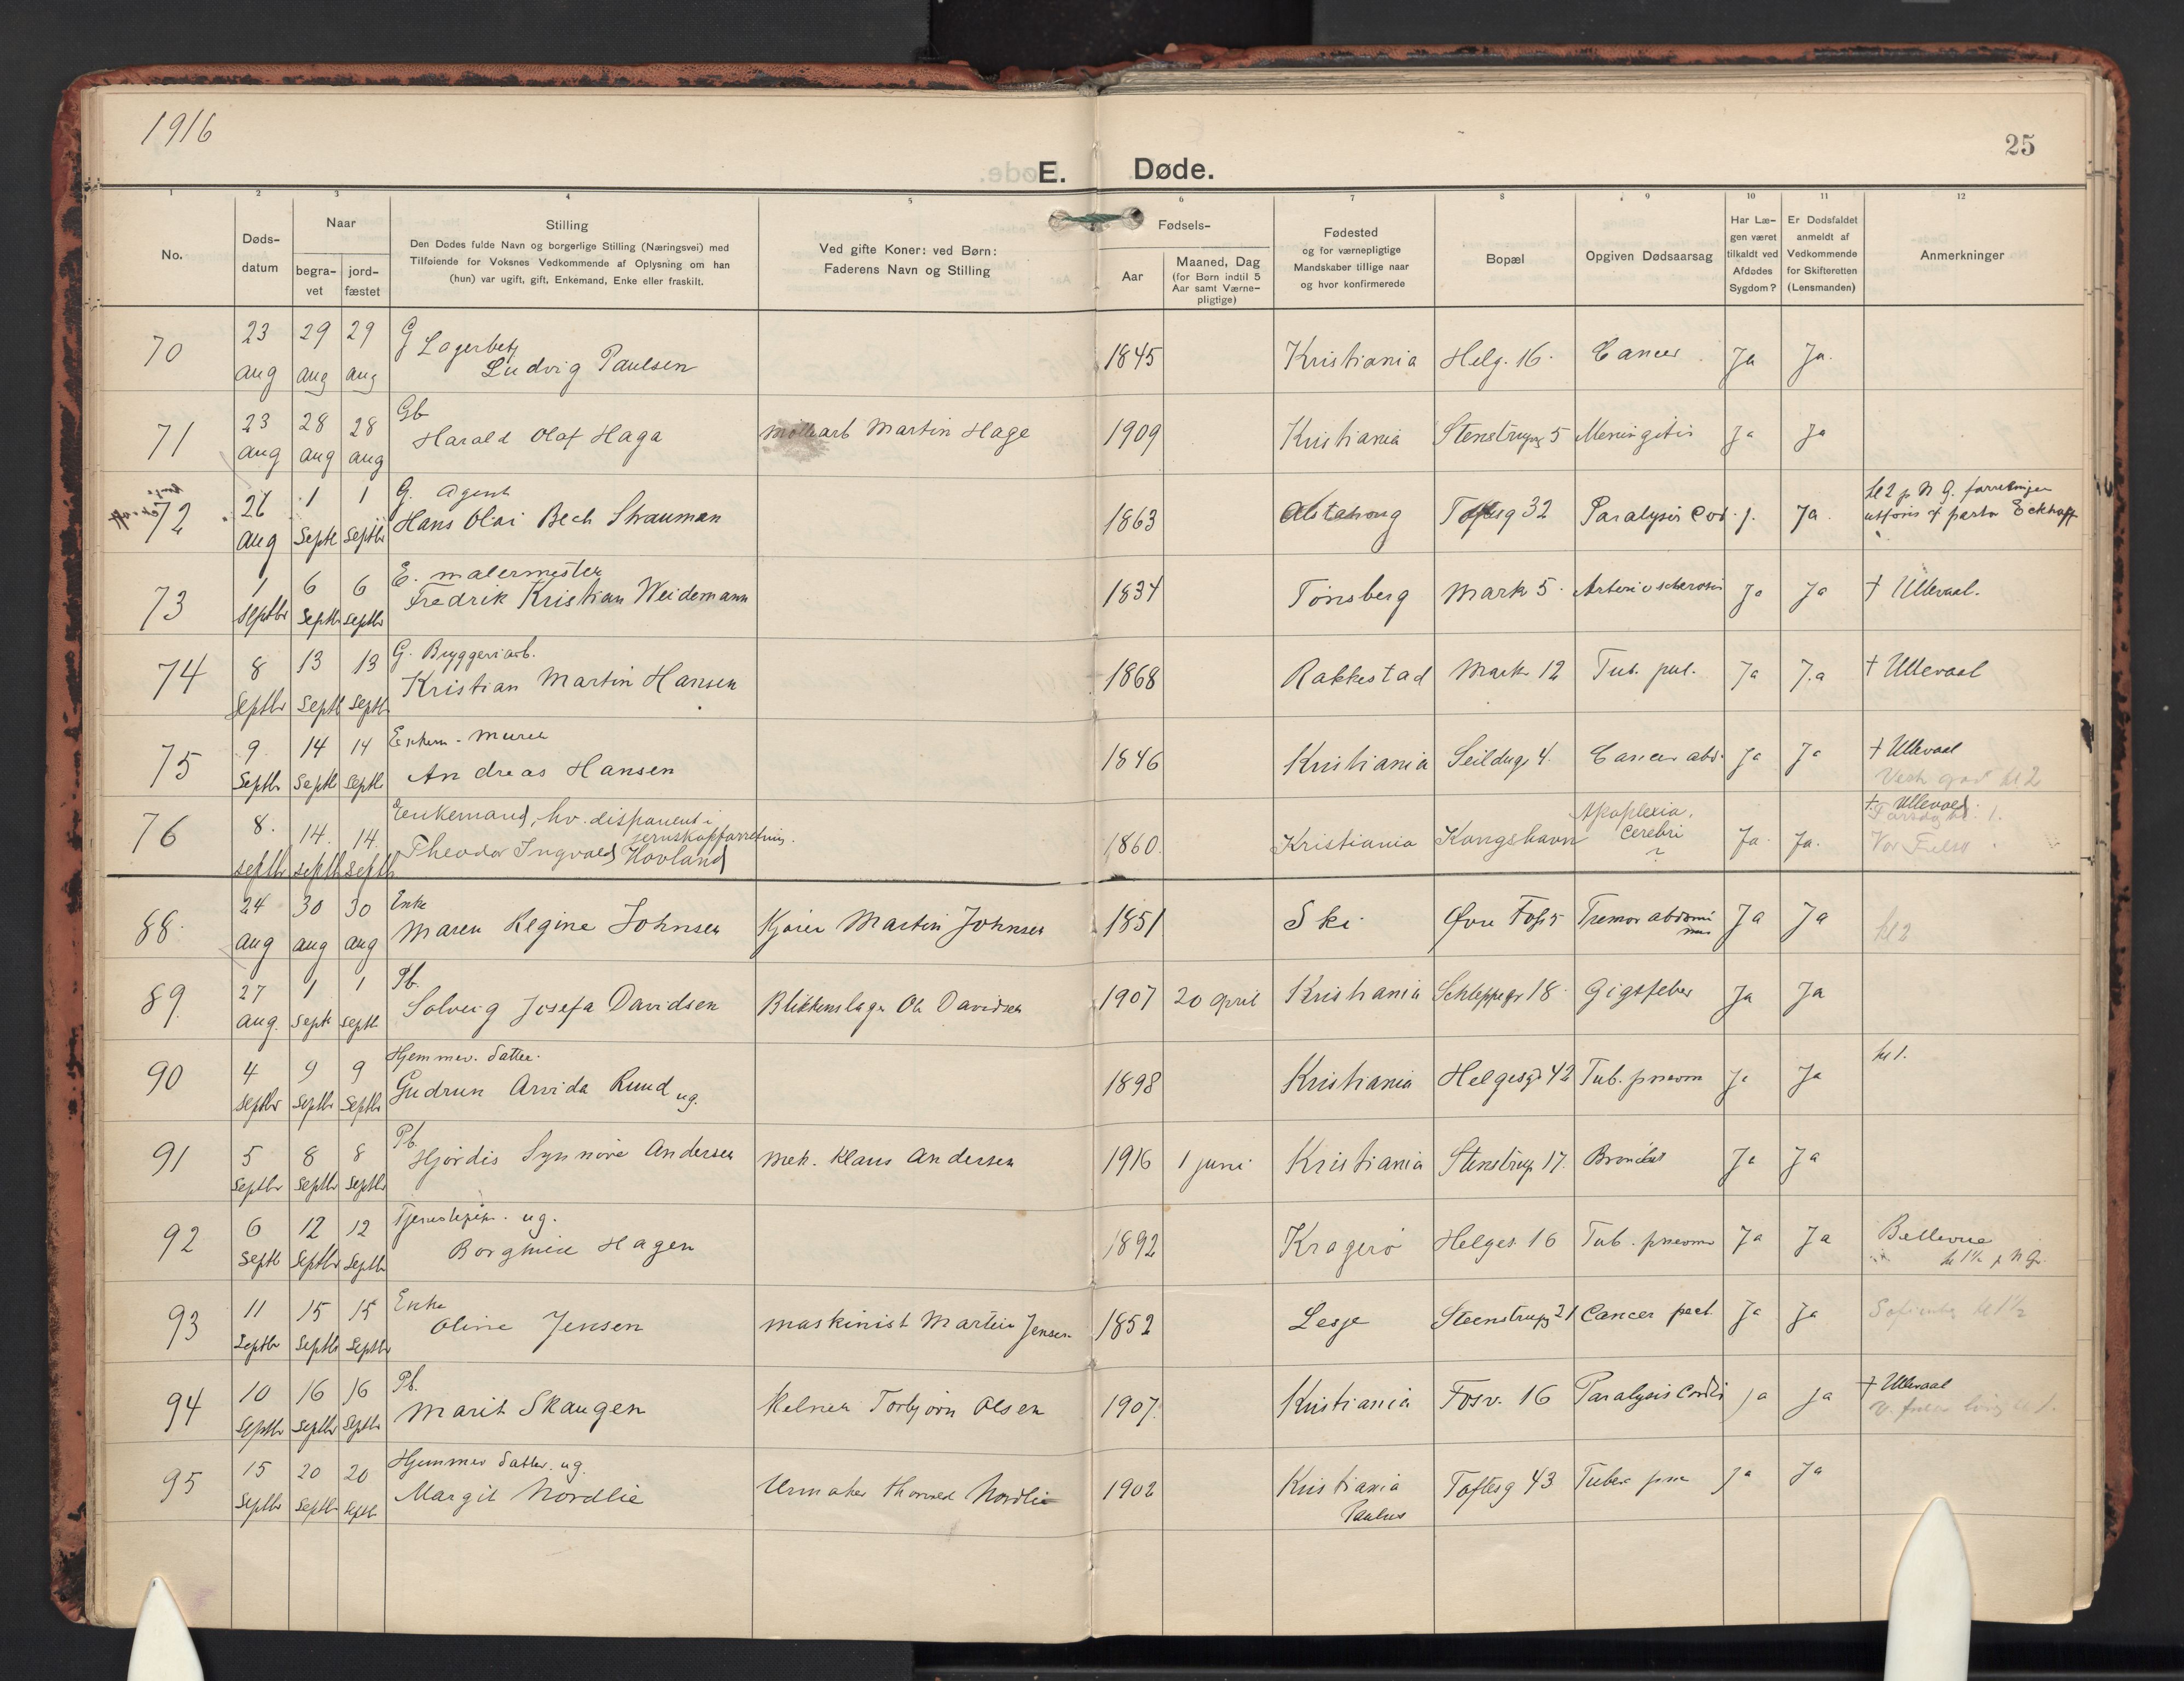 1916
25
E. Døde.
1 2 3 4 5 6 7 8 9 10 11 12
No.
Døds-
datum
Naar
begra-
vet
jord-
fæstet
Stilling
Den Dødes fulde Navn og borgerlige Stilling (Næringsvei) med
Tilføiende for Voksnes Vedkommende af Oplysning om han
(hun) var ugift, gift, Enkemand, Enke eller fraskilt.
Ved gifte Koner: ved Børn:
Faderens Navn og Stilling
Fødsels-
Aar
Maaned, Dag
(for Børn indtil 5
Aar samt Værne-
pligtige)
Fødested
og for værnepligtige
Mandskaber tillige naar
og hvor konfirmerede
Bopæl
Opgiven Dødsaarsag
Har Læ-
gen været
tilkaldt ved
Afdødes
Sygdom?
Er Dødsfaldet
anmeldt af
Vedkommende
for Skifteretten
(Lensmanden)
Anmerkninger
70 23 aug 29 aug 29 aug G Lagerbetj
Ludvig Paulsen 1845 Kristiania Helg. 16. Cancer. Ja Ja.
71 23 aug 28 aug 28 aug Gb
Harald Olaf Haga møllearb Martin Hage 1909 Kristiania Stenstrupg 5 Meningitis Ja Ja
72 aug 1 Septb 1 Septbr G. Agent
Hans Olai Bech Strauman 1863 Alstahoug Toftesg 32 Paralysis Cor. j. Ja.
kl 2 p N. G. forretningen
utføris af pastor Eckhoff
73 1 Septbr 6 Septb 6 Septbr E. malermester
Fredrik Kristian Weidemann 1834 Tønsberg Mark 5. Arteriosclerosis Ja Ja † Ullevaal.
74 8 Septbr 13 Septb 13 Septb G. Bryggeriarb.
Kristian Martin Hansen 1868 Rakkestad Mark 12 Tub. pul. Ja Ja † Ullevaal
75 9 Septbr 14 Septb 14 Septb Enkem. Murer
Andreas Hansen 1846 Kristiania Seildugs 4. Cancer abd. Ja Ja † Ullevaal
kl 2
76 8. septbr 14. septb 14. septb Enkemand, hv. disponent i
jernskapforretnin.
Theodor Ingvald Hovland 1860. Kristiania Kongshavn Apoplexia.
Cerebri
? Ja. Ja. † Ullevaal.
Vor Frelse
88. 24 aug 30 aug 30 aug Enke
Maren Regine Johnsen Kjører Martin Johnsen 1851 Ski Øvre Foss 5 Tremor abdomi
nis Ja Ja kl 2
89. 27 aug. 1 Septb 1 Septb Pb.
Solveig Josefa Davidsen Blikkenslager Ole Davidsen 1907 20 april Kristiania Schleppegr 18. Gigtfeber Ja Ja
90 4 Septbr 9 Septbr 9 Septbr Hjemmev. datter.
Gudrun Arvida Ruud ug. 1898 Kristiania Helgesgt 42 Tub. pneom Ja Ja kl 1.
91 5 Septbr 8 Septbr 8 Septbr Pb.
Hjördis Synnöve Andersen mek. Klaus Andersen 1916 1 juni Kristiania Stenstrup 17. Ja Ja
92 6 Septb 12 Septbr 12 Septbr Tjenestepike. ug.
Borghild Hagen 1892 Kragerö Helges. 16 Tub. pneomo Ja Ja Bellevue
kl 1½ p N G.
93 11 Septbr 15 Septbr 15 Septbr Enke
Oline Jensen maskinist Martin Jensen 1852 Lesje Steenstrupg 21 Cancer pect. Ja Ja kl 1½
94 10 Septbr 16 Septbr 16 Septbr Pb.
Marit Skaugen Kelner Torbjørn Olsen 1907. Kristiania Fosv. 16 Paralysis Cordis Ja Ja † Ullevaal
95 15 Septbr 20 Septbr 20 Septb Hjemmev datter. ug.
Margit Nordlie Urmaker Thorvald Nordlie 1902 Kristiania
Paulus Toftesg 43 Tuberc pne Ja Ja